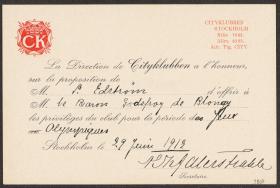 CK
CITYKLUBBEN
STOCKHOLM
Riks 1641.
Allm. 4025.
Adr. Tlg. CITY
La Direction de Cityklubben a l'honneur,
sur la proposition de
M. S. Edström d'offrir à
M. le Baron Godefroy de Blonay
les privilèges du club pour la période des Jeux
Olympiques
Stockholm le 29 Juin 1912
Secrétaire